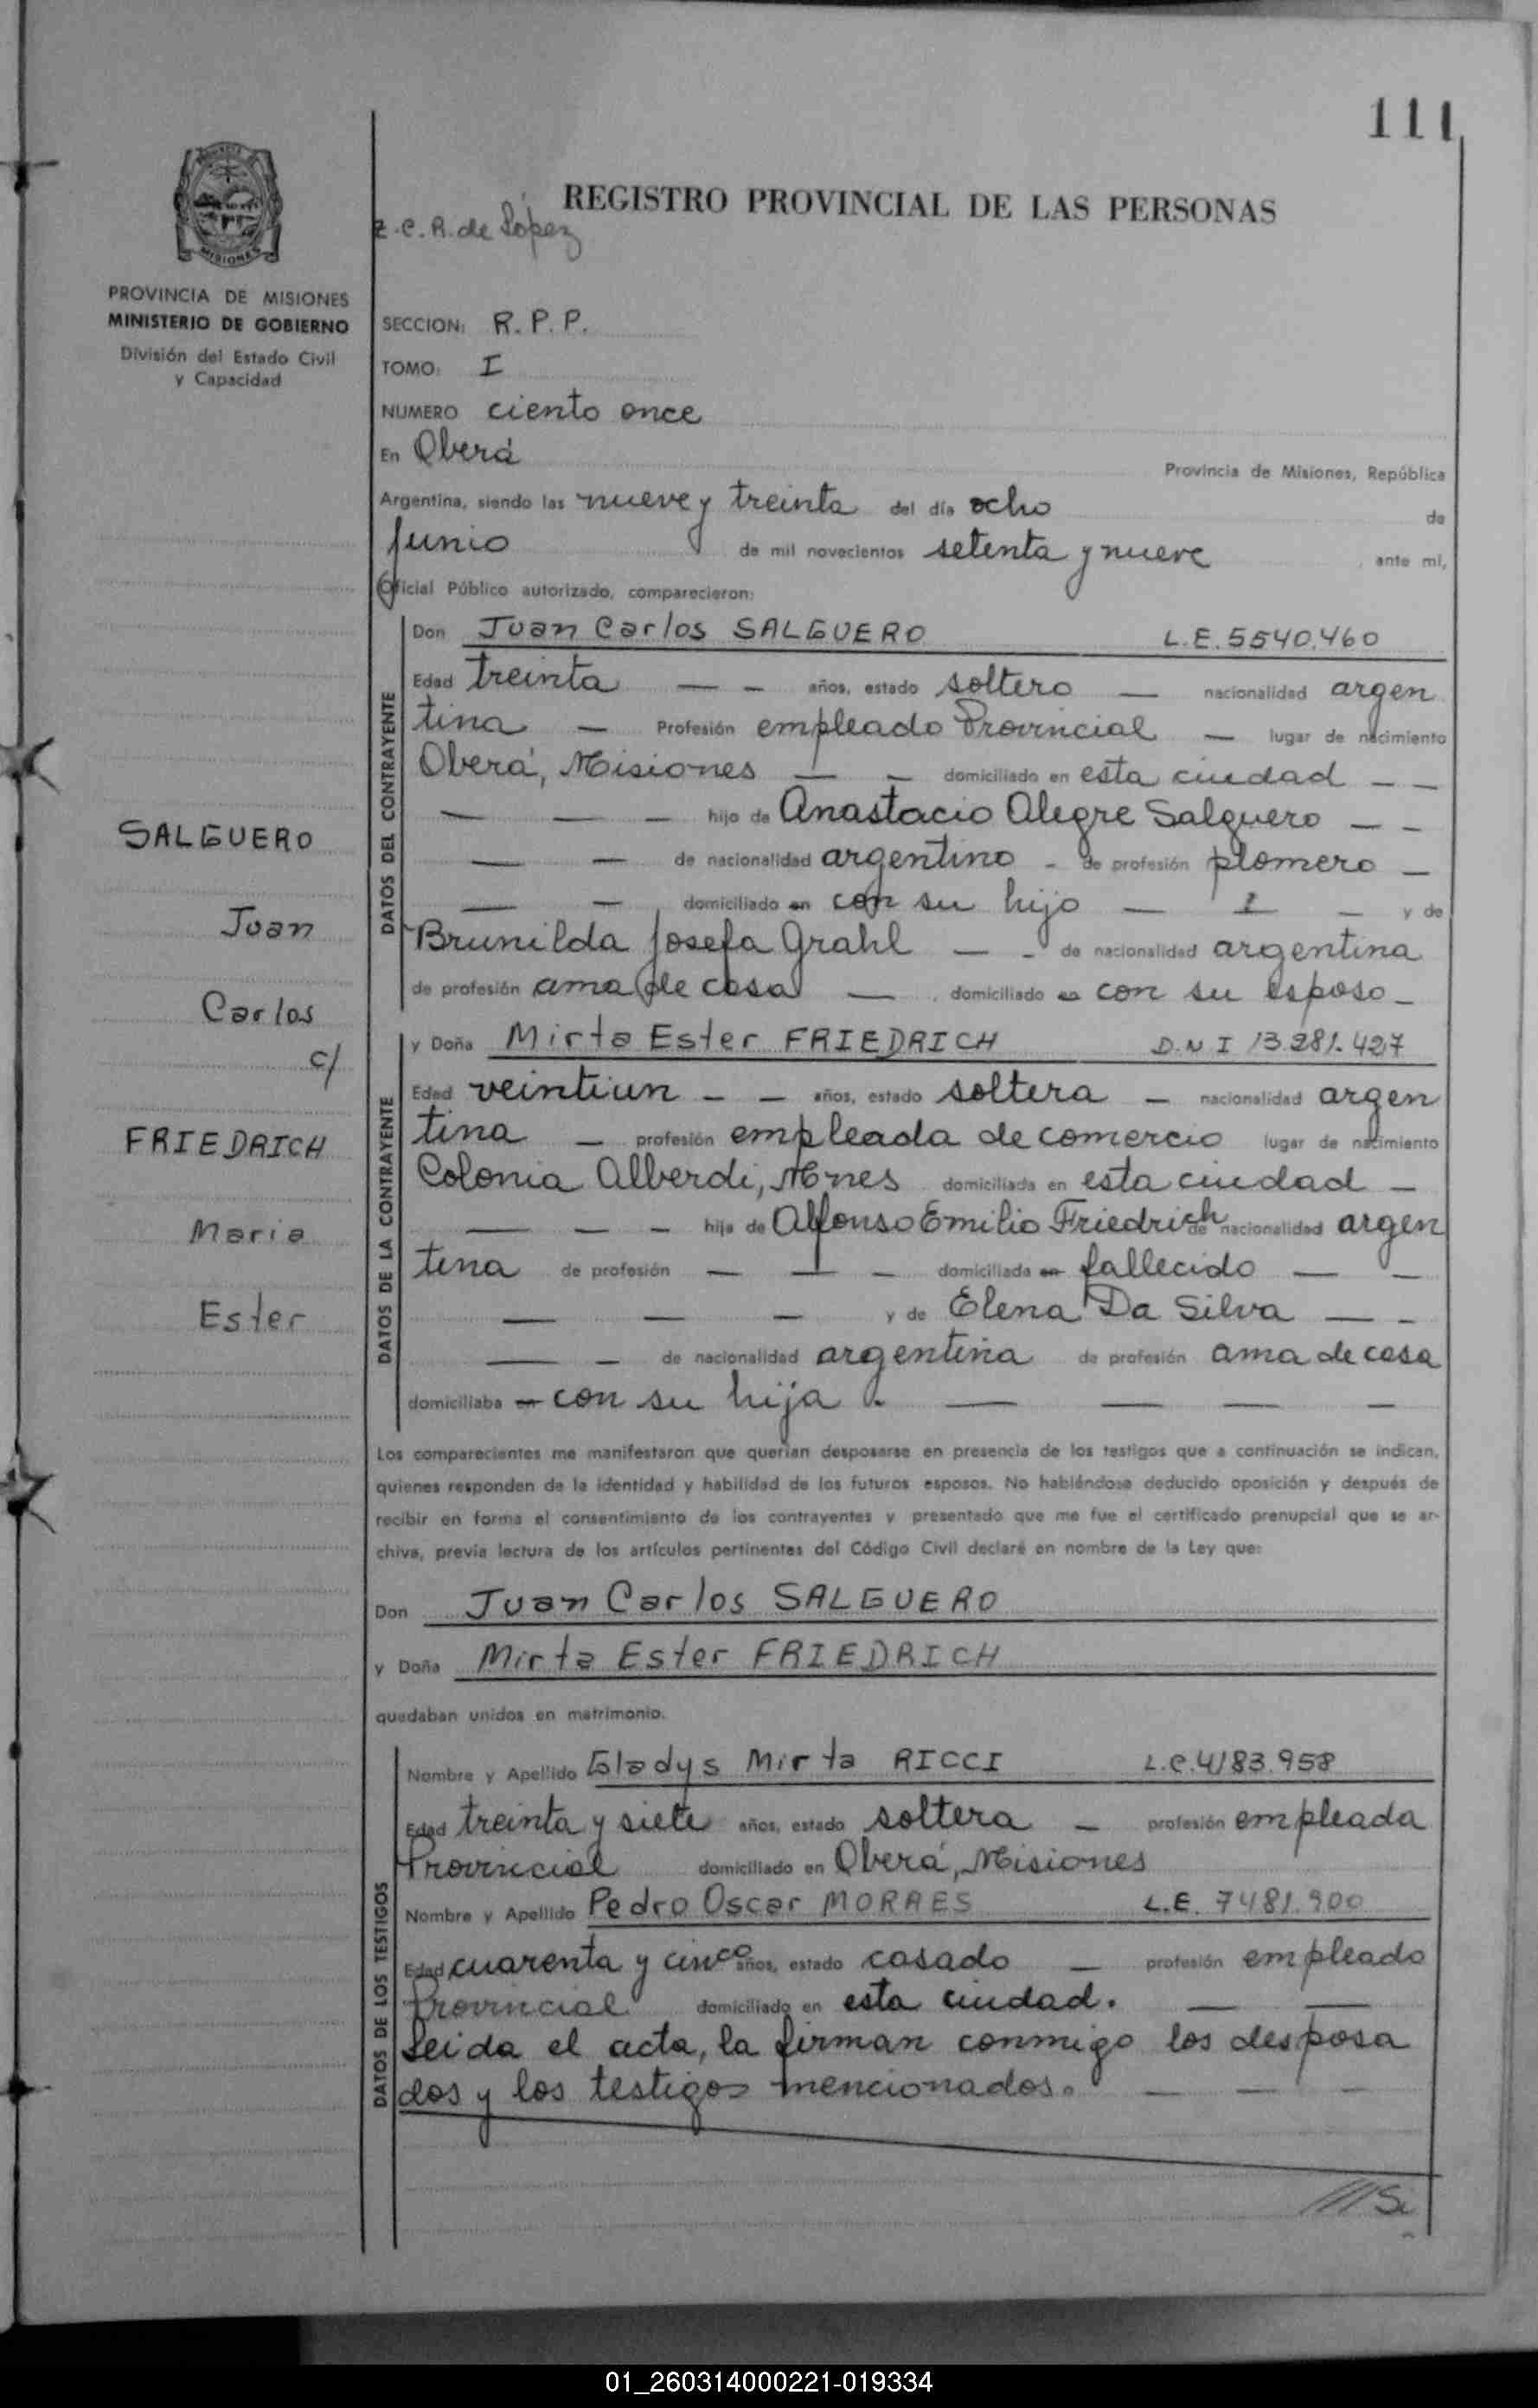 111
REGISTRO PROVINCIAL DE LAS PERSONAS
Z.C.R. de López
PROVINCIA DE MISIONES
MINISTERIO DE GOBIERNO
División del Estado Civil
y Capacidad
SECCION: R.P.P.
TOMO: I
NUMERO ciento once
En Oberá
Provincia de Misiones, República
Argentina, siendo las nueve y treinta del día ocho de
Junio de mil novecientos setenta y nueve, ante mí,
Oficial Público autorizado, comparecieron:
DATOS DEL CONTRAYENTE
Don Juan Carlos SALGUERO L.E. 5540.460
Edad treinta — — años, estado soltero — nacionalidad argen
tina — Profesión empleado Provincial — lugar de nacimiento
Oberá, Misiones — — domiciliado en esta ciudad — —
— — — hijo de Anastacio Alegre Salguero — —
— — de nacionalidad argentino - de profesión plomero —
— — domiciliado en con su hijo — — — y de
Brunilda Josefa Grahl — - de nacionalidad argentina
de profesión ama de casa — domiciliado en con su esposo —
SALGUERO
Juan
Carlos
c/
FRIEDRICH
Maria
Ester
DATOS DE LA CONTRAYENTE
y Doña Mirta Ester FRIEDRICH D.N I 13.281.427
Edad veintiun — — años, estado soltera — nacionalidad argen
tina — profesión empleada de comercio lugar de nacimiento
Colonia Alberdi, Mnes domiciliada en esta ciudad —
— — — hija de Alfonso Emilio Friedrich de nacionalidad argen
tina de profesión — — — domiciliada en fallecido — —
— — — y de Elena Da Silva — —
— — de nacionalidad argentina de profesión ama de casa
domiciliaba en con su hija. — — — —
Los comparecientes me manifestaron que querían desposarse en presencia de los testigos que a continuación se indican,
quienes responden de la identidad y habilidad de los futuros esposos. No habiéndose deducido oposición y después de
recibir en forma el consentimiento de los contrayentes y presentado que me fue el certificado prenupcial que se ar-
chiva, previa lectura de los artículos pertinentes del Código Civil declaré en nombre de la Ley que:
Don Juan Carlos SALGUERO
y Doña Mirta Ester FRIEDRICH
quedaban unidos en matrimonio.
DATOS DE LOS TESTIGOS
Nombre y Apellido Gladys Mirta RICCI L.C.4183.958
Edad treinta y siete años, estado soltera — profesión empleada
Provincial domiciliado en Oberá, Misiones
Nombre y Apellido Pedro Oscar MORAES L.E. 7481.900
Edad cuarenta y cinco años, estado casado — profesión empleado
Provincial domiciliado en esta ciudad. — —
Leida el acta, la firman conmigo los desposa
dos y los testigos mencionados. — — —
///Si
01_260314000221-019334